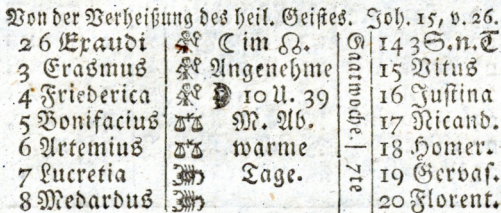 Von der Verheißung des heil. Geistes. Joh. 15, v. 26.
2 6 Exaudi ☾ im ☊. 14 3 S. n. T
3 Erasmus Angenehme 15 Vitus
4 Friederica 10 U. 39 16 Justina
5 Bonifacius ♎ M. Ab. 17 Nicand.
6 Artemius ♎ warme 18 Homer.
7 Lucretia Tage. 19 Gervas.
8 Medardus 20 Florent.
Saatwoche. 7te